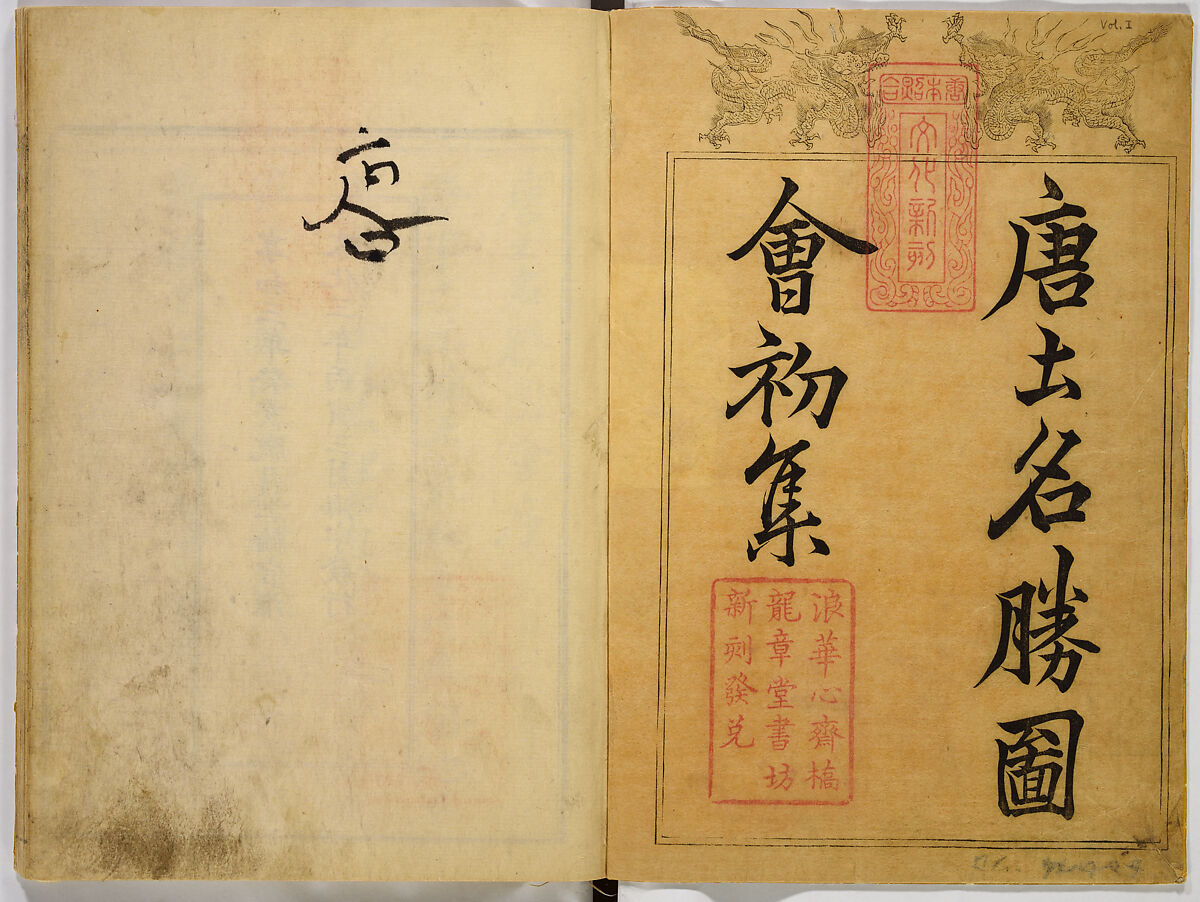 Vol. I
文化新刻
唐土名勝圖
會初集
浪華心齋橋
龍章堂書坊
新刻發兌